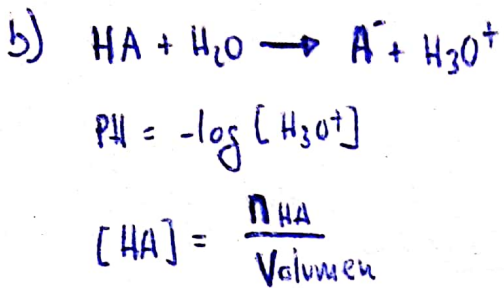 b) HA + H₂O ⟶ A⁻ + H₃O⁺
PH = -log [H₃O⁺]
[HA] = n HA / Volumen